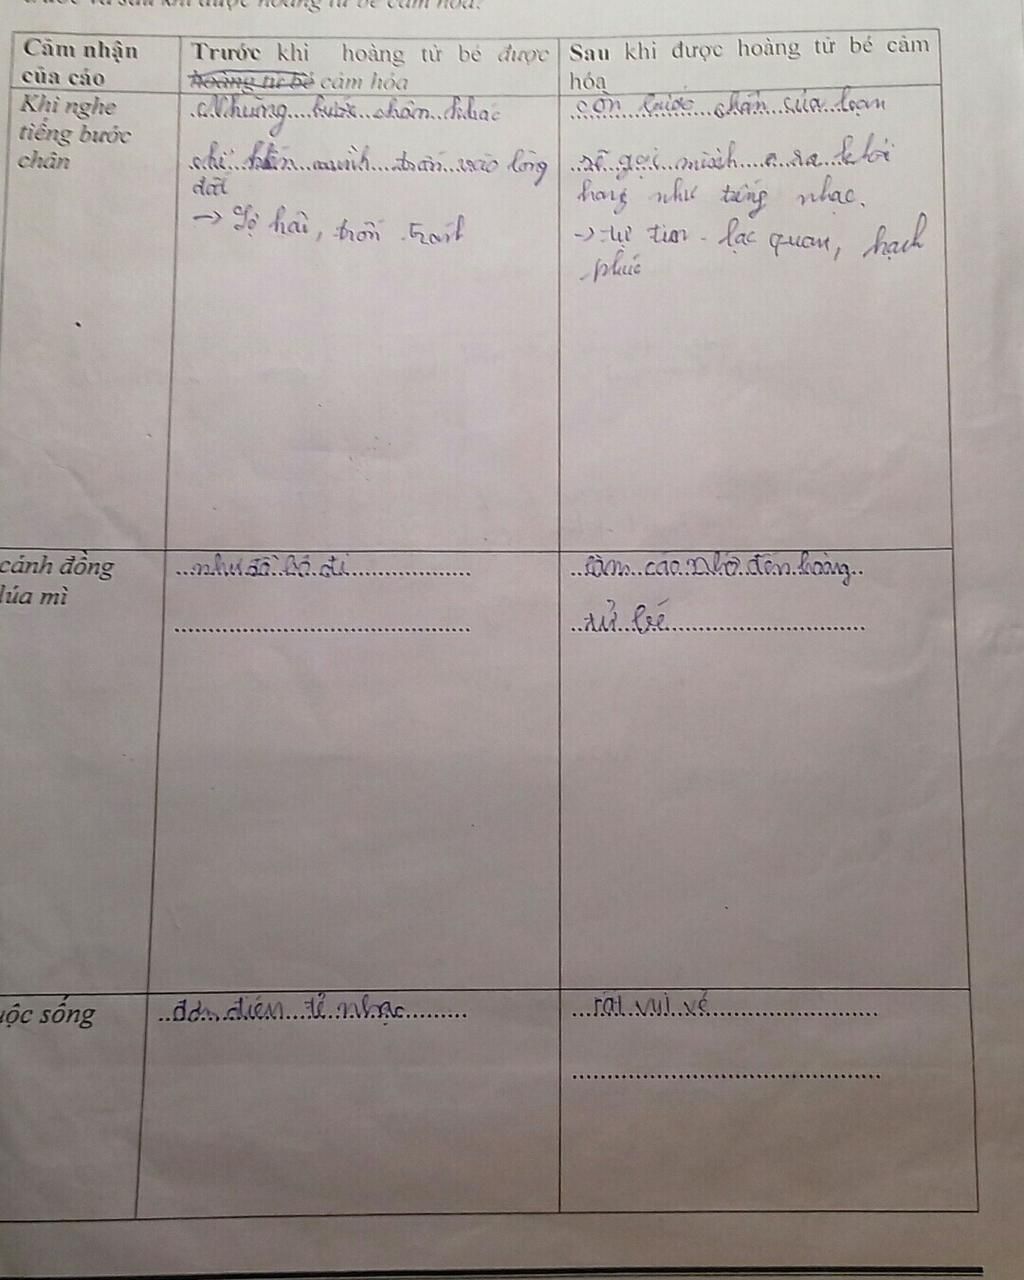 trước và sau khi được hoàng tử bé cảm hóa?
Cảm nhận
của cáo
Trước khi hoàng tử bé được
hoàng tử bé cảm hóa
Sau khi được hoàng tử bé cảm
hóa
Khi nghe
tiếng bước
chân
Những bước chân khác
chỉ khiến mình trốn vào lòng
đất
→ Sợ hãi, trốn tránh
còn bước chân của bạn
sẽ gọi mình ra khỏi
hang như tiếng nhạc.
→ tự tin - lạc quan, hạnh
phúc
cánh đồng
lúa mì
như đồ bỏ đi
làm cáo nhớ đến hoàng
tử bé
uộc sống
đơn điệu tẻ nhạt
rất vui vẻ